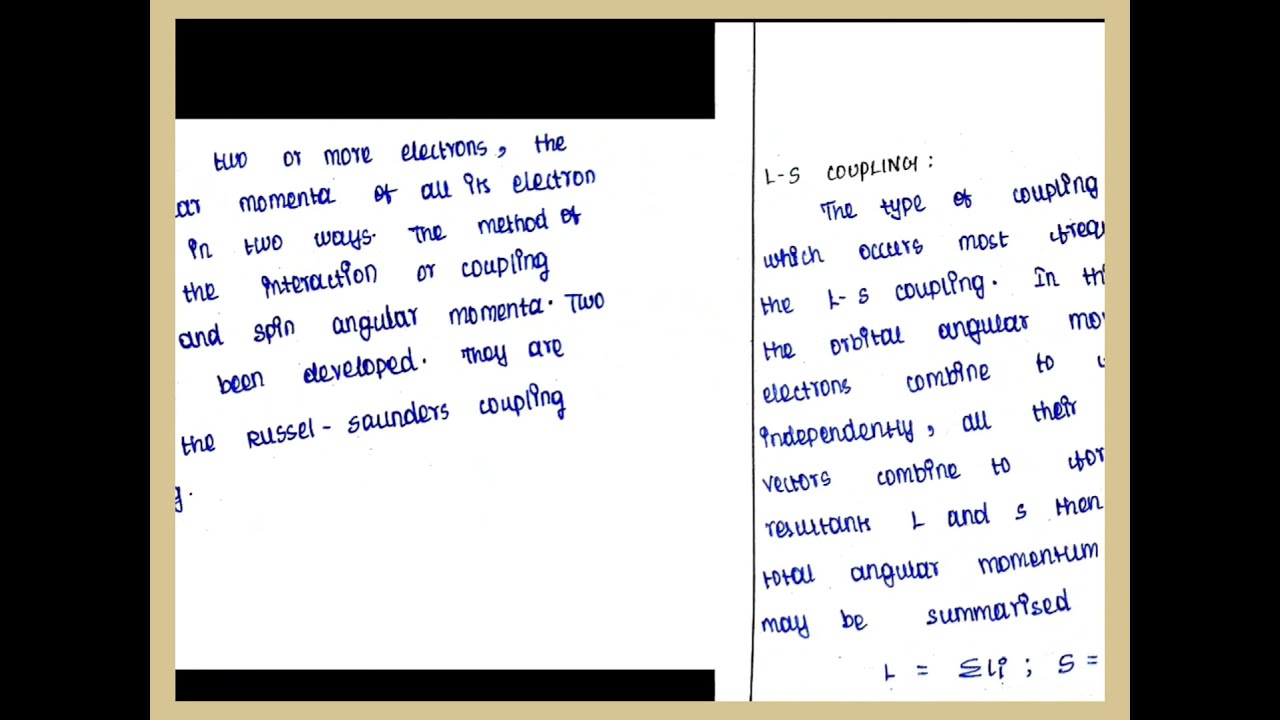 two or more electrons, the
ar momenta of all its electron
in two ways. The method of
the interaction or coupling
and spin angular momenta. Two
been developed. They are
the Russel-Saunders coupling
g.
L-S COUPLING:
The type of coupling
which occurs most frequ
the L-S coupling. In thi
the orbital angular mo
electrons combine to
independently, all their
vectors combine to for
resultants L and S then
total angular momentum
may be summarised
L = Σli ; S =